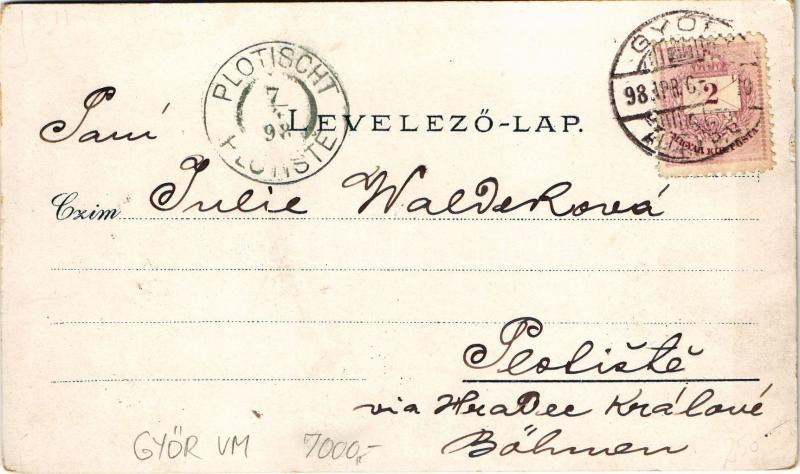 GYŐR
98 APR. 6
2
MAGYAR KIR. POSTA
PLOTISCHT
7/4
98
PLOTIŠTĚ
LEVELEZŐ-LAP.
Paní
Czim Julie Waldekova
Plotiště
via Hradec Králové
Böhmen
GYŐR VM 7000,-